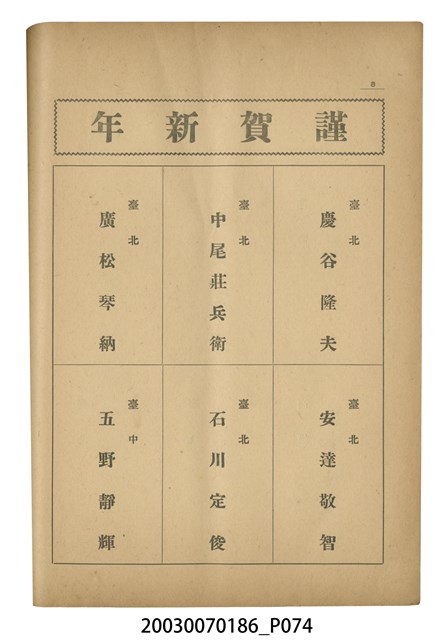 8
謹賀新年
臺北
慶谷隆夫
臺北
中尾莊兵衛
臺北
廣松琴納
臺北
安達敬智
臺北
石川定俊
臺中
五野靜輝
20030070186_P074